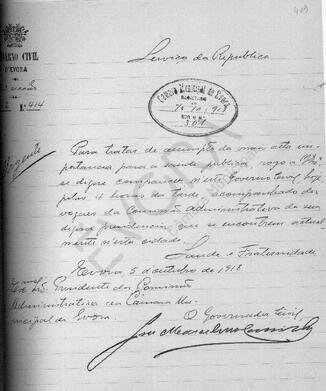 419
Serviço da Republica
GOVERNO CIVIL
D'EVORA
Camara Municipal de Evora
N.º 414
Urgente
Para tratar de assumpto da mais alta im-
portancia para a saude publica, rogo a V. Ex.ª
se digne comparecer n'este Governo Civil, hoje
pelas 4 horas da tarde, acompanhado dos
vogaes da Commissão Administrativa da sua
digna presidencia, que se encontrem actual-
mente n'esta cidade.
Saude e Fraternidade
Evora, 5 de outubro de 1918
Presidente da Commissão
Administrativa da Camara Mu-
nicipal de Evora.
O Governador Civil,